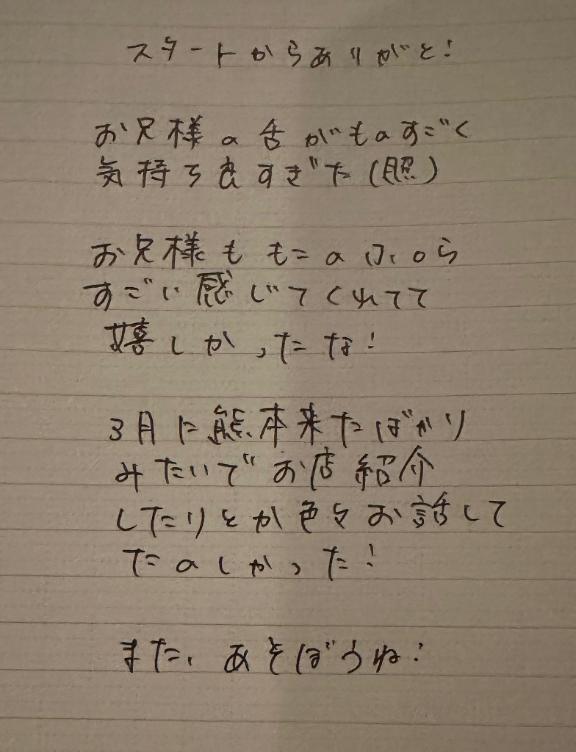 スタートからありがと!
お兄様の舌がものすごく
気持ち良すぎた(照)
お兄様も
すごい感じてくれてて
嬉しかったな!
3月に熊本来たばかり
みたいでお店紹介
したりとか色々お話して
たのしかった!
また、あそぼうね!